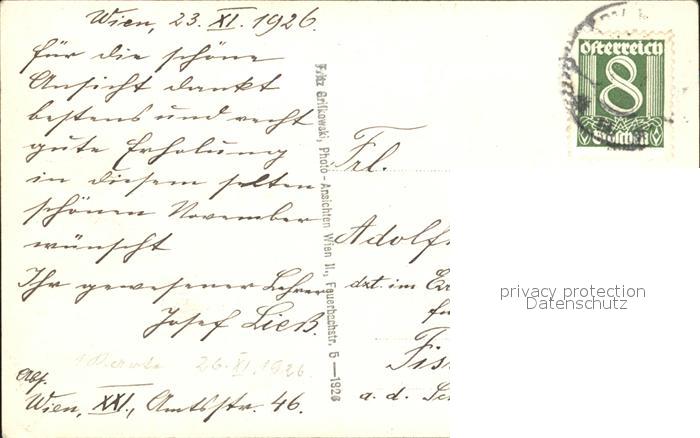 Wien, 23. XI. 1926.
für die schöne
Ansicht dankt
bestens und recht
gute Erholung
in diesem selten
schönen November
wünscht
Ihr gewesener Lehrer
Josef Ließ.
26. XI. 1926.
Abs.
Wien, XXI., Amtsstr. 46.
Fritz Gritkowski, Photo-Ansichten Wien II., Feuerbachstr. 5 — 1926
Österreich
8
Groschen
Frl.
Adolf
dzt. im
Fis
a. d.
privacy protection
Datenschutz